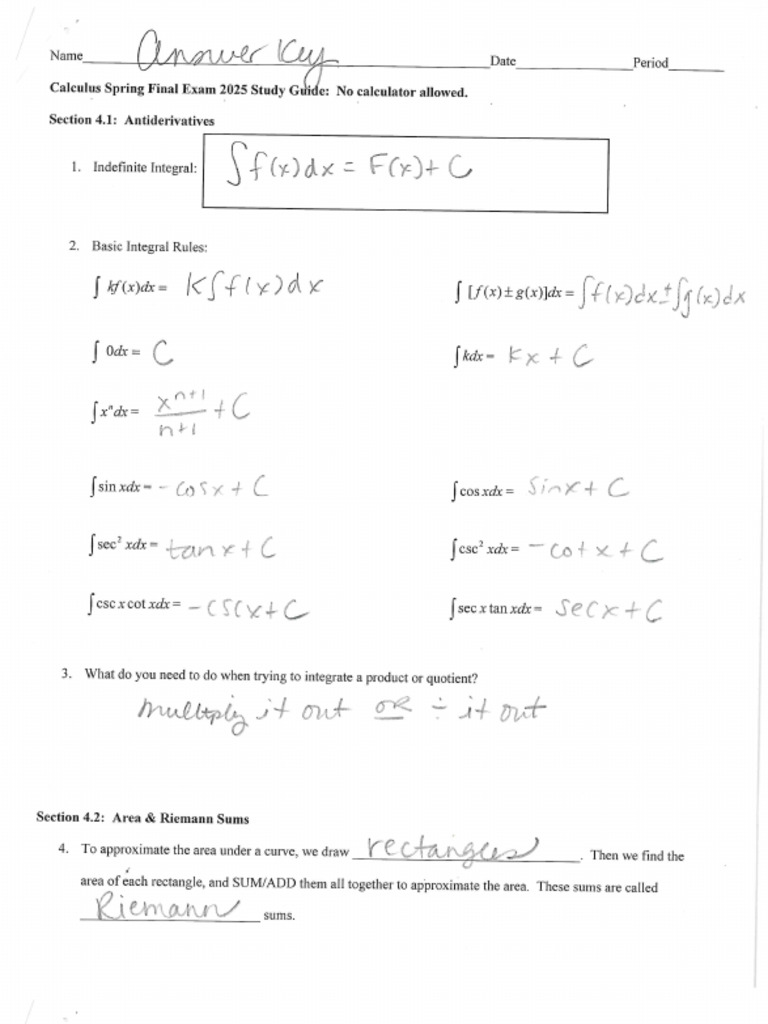 Name Answer Key Date Period
Calculus Spring Final Exam 2025 Study Guide: No calculator allowed.
Section 4.1: Antiderivatives
1. Indefinite Integral: ∫f(x)dx = F(x) + C
2. Basic Integral Rules:
∫ kf(x)dx = K∫f(x)dx ∫[f(x) ± g(x)]dx = ∫f(x)dx ± ∫g(x)dx
∫ 0dx = C ∫kdx = Kx + C
∫xⁿdx = xⁿ⁺¹/n+1 + C
∫sin xdx = -cosx + C ∫cos xdx = sinx + C
∫sec² xdx = tanx + C ∫csc² xdx = -cotx + C
∫csc x cot xdx = -cscx + C ∫sec x tan xdx = secx + C
3. What do you need to do when trying to integrate a product or quotient?
multiply it out OR ÷ it out
Section 4.2: Area & Riemann Sums
4. To approximate the area under a curve, we draw rectangles. Then we find the
area of each rectangle, and SUM/ADD them all together to approximate the area. These sums are called
Riemann sums.